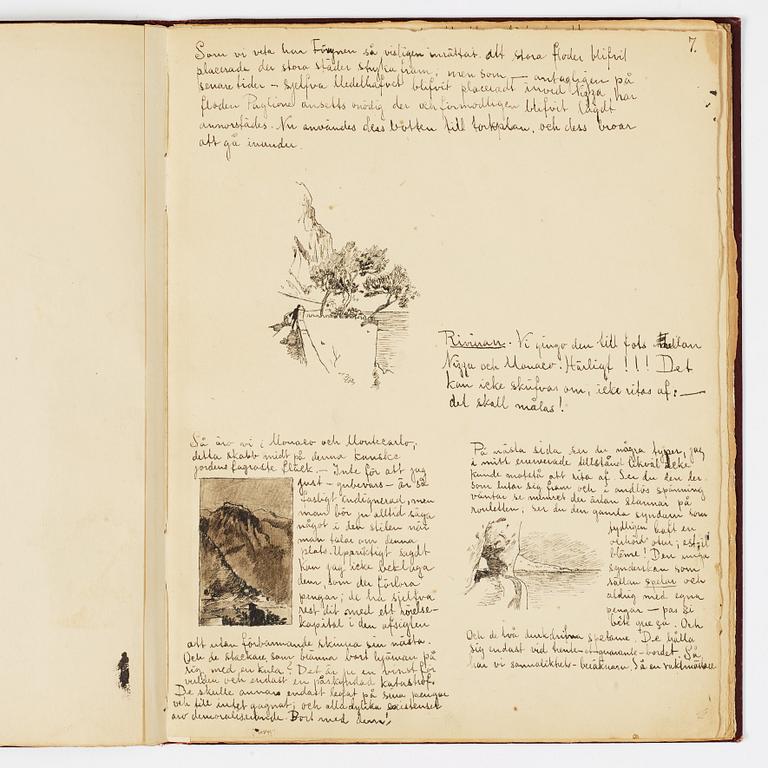 7.
Som vi veta har Försynen så visligen inrättat att stora floder blifvit
placerade der stora städer stryka fram; men som — antagligen på
senare tider — sjelfva Medelhafvet blifvit placeradt invid Nizza har
floden Paglione ansetts onödig der och förmodligen blefvit lagdt
annorstädes. Nu användes dess botten till torkplan, och dess broar
att gå inunder.
Rivieran. Vi gingo den till fots mellan
Nizza och Monaco. Härligt!!! Det
kan icke skrifvas om, icke ritas af: —
det skall målas!
Så äro vi i Monaco och Montecarlo,
detta skabb midt på denna kanske
jordens fagraste fläck. — Inte för att jag
just — gubevars — är så
fasligt indignerad, men
man bör ju alltid säga
något i den stilen när
man talar om denna
plats. Uppriktigt sagdt
kan jag icke beklaga
dem, som der förlora
pengar; de ha sjelfva
rest dit med ett rörelse-
kapital i den afsigten
att utan förbarmande skinna sin nästa.
Och de stackare som bränna bort hjärnan på
sig med en kula? Det är ju en vinst för
verlden och endast en påskyndad katastrof.
De skulle annars endast legat på sina pengar
och till intet gagnat; och alla dylika existenser
äro demoraliserande. Bort med dem!
På nästa sida ser du några typer, jag
i mitt enerverade tillstånd likväl icke
kunde motstå att rita af. Ser du den der
som lutar sig fram och i andlös spänning
väntar se numret der ärlan stannar på
rouletten; ser du den gamla syndaren som
tydligen haft en
oerhörd otur; est-il
blême! Den unga
synderskan som
sällan spelar och
aldrig med egna
pengar — pas si
bête que ça. Och
Och de två lurkdrifna spelarne. De hålla
sig endast vid trente-et-quarante-bordet. Så
har vi sannolikhets-beräknaren. Så en vaktmästare